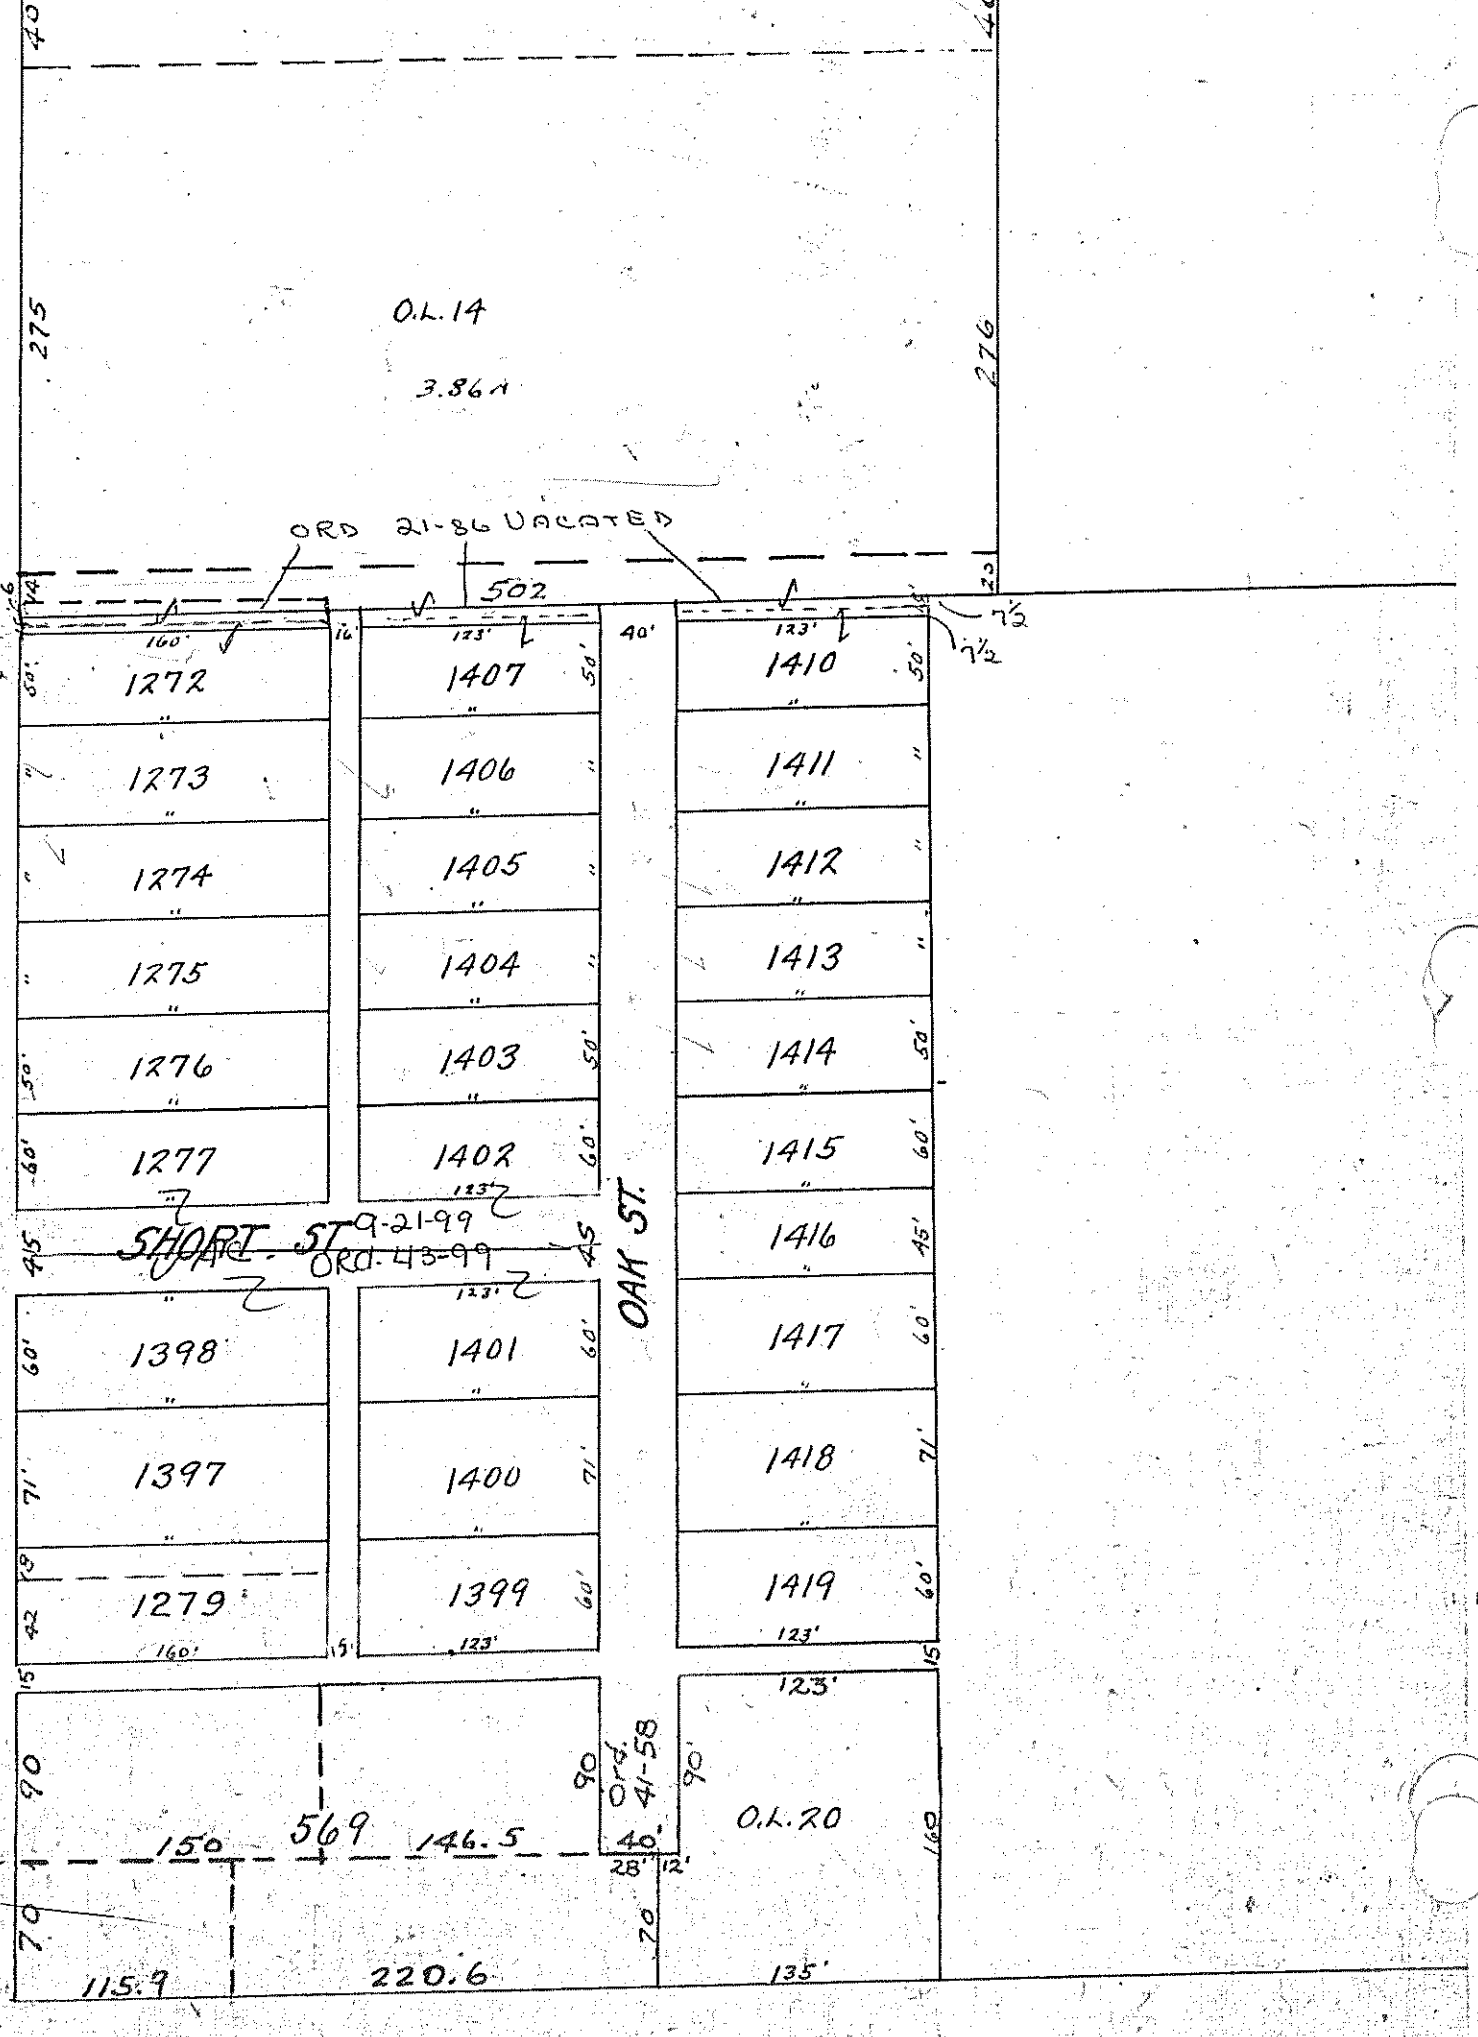 40
275
O.L. 14
3.86A
276
ORD 21-86 VACATED
502
6
14
23
7½
7½
160'
16'
123'
40'
123'
50'
1272
1407
50'
1410
50'
"
"
"
"
1273
1406
"
1411
"
"
"
"
"
1274
1405
"
1412
"
"
"
"
"
1275
1404
"
1413
"
"
"
"
50'
1276
1403
50'
1414
50'
"
"
"
60'
1277
1402
60'
1415
60'
"
123'
"
SHORT. ST
9-21-99
VAC. ORD. 43-99
45
45
OAK ST.
1416
45'
"
"
123'
60'
1398
1401
60'
1417
60'
"
"
"
71'
1397
1400
71'
1418
71'
"
"
"
18
42
1279
1399
60'
1419
60'
160'
15'
123'
123'
15
15
123'
90
90
Ord.
41-58
90'
150
569
146.5
40'
O.L. 20
160
28' 12'
70
70
115.9
220.6
135'